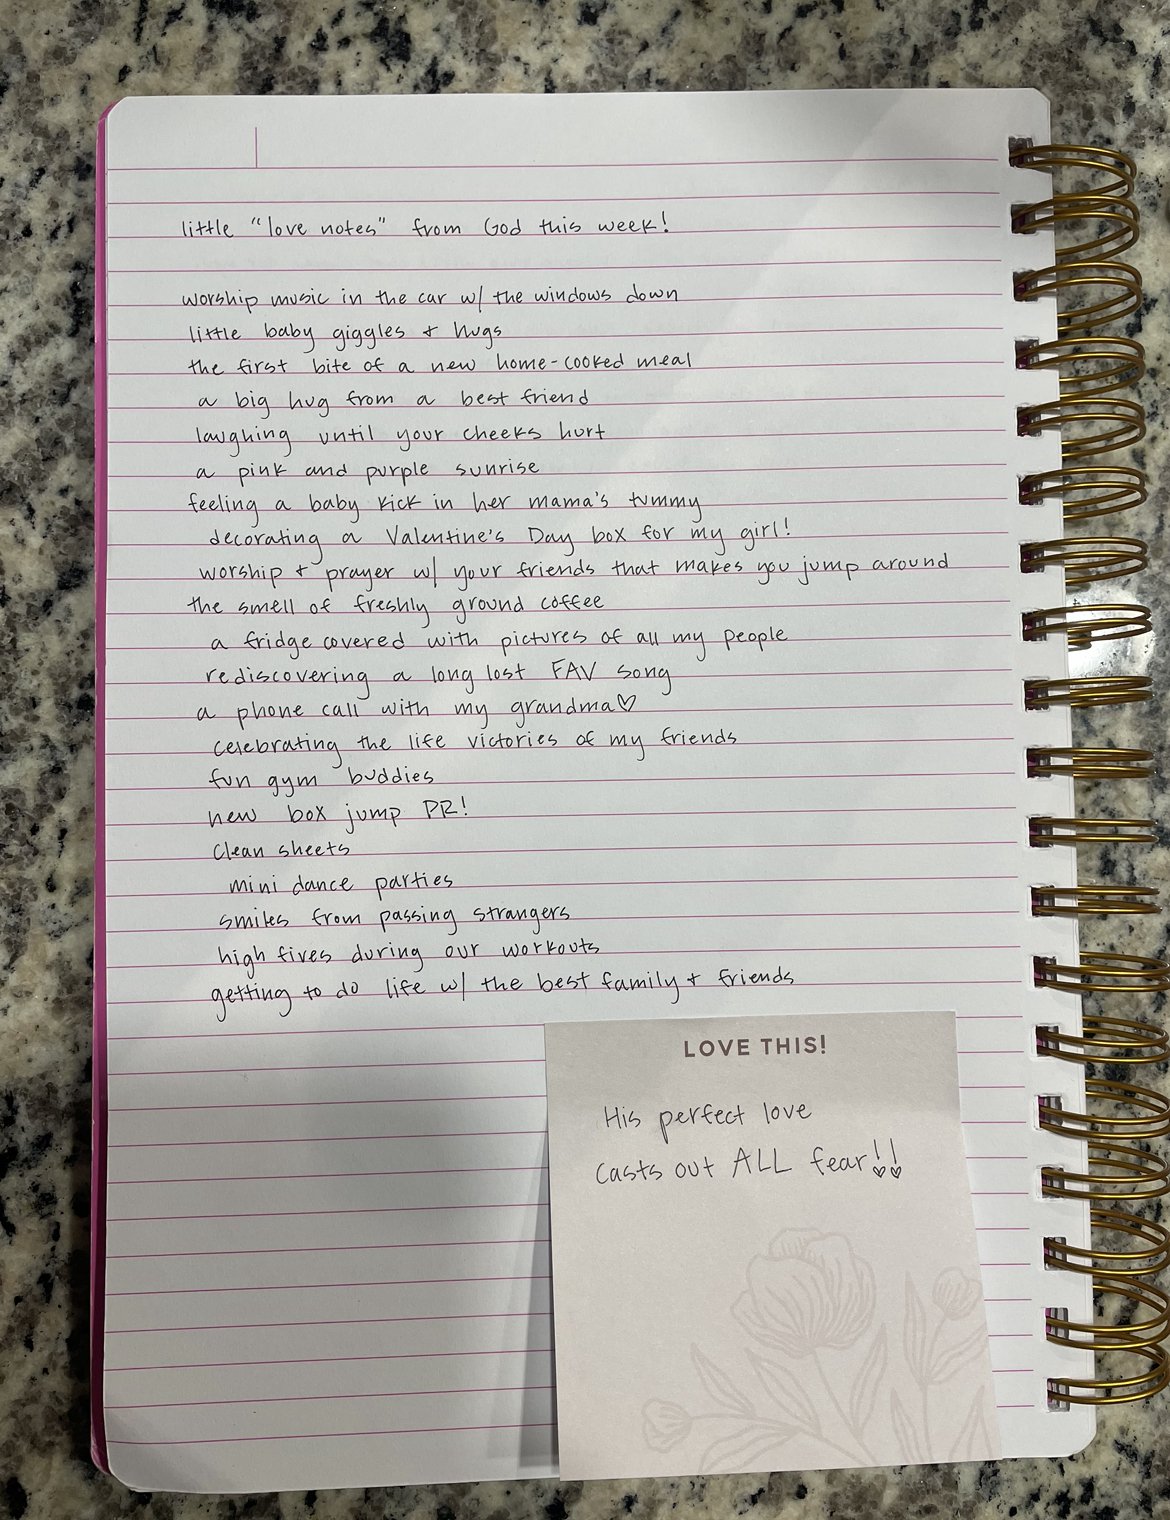 little "love notes" from God this week!
worship music in the car w/ the windows down
little baby giggles + hugs
the first bite of a new home-cooked meal
a big hug from a best friend
laughing until your cheeks hurt
a pink and purple sunrise
feeling a baby kick in her mama's tummy
decorating a Valentine's Day box for my girl!
worship + prayer w/ your friends that makes you jump around
the smell of freshly ground coffee
a fridge covered with pictures of all my people
rediscovering a long lost FAV song
a phone call with my grandma♡
celebrating the life victories of my friends
fun gym buddies
new box jump PR!
clean sheets
mini dance parties
smiles from passing strangers
high fives during our workouts
getting to do life w/ the best family + friends
LOVE THIS!
His perfect love
casts out ALL fear!!